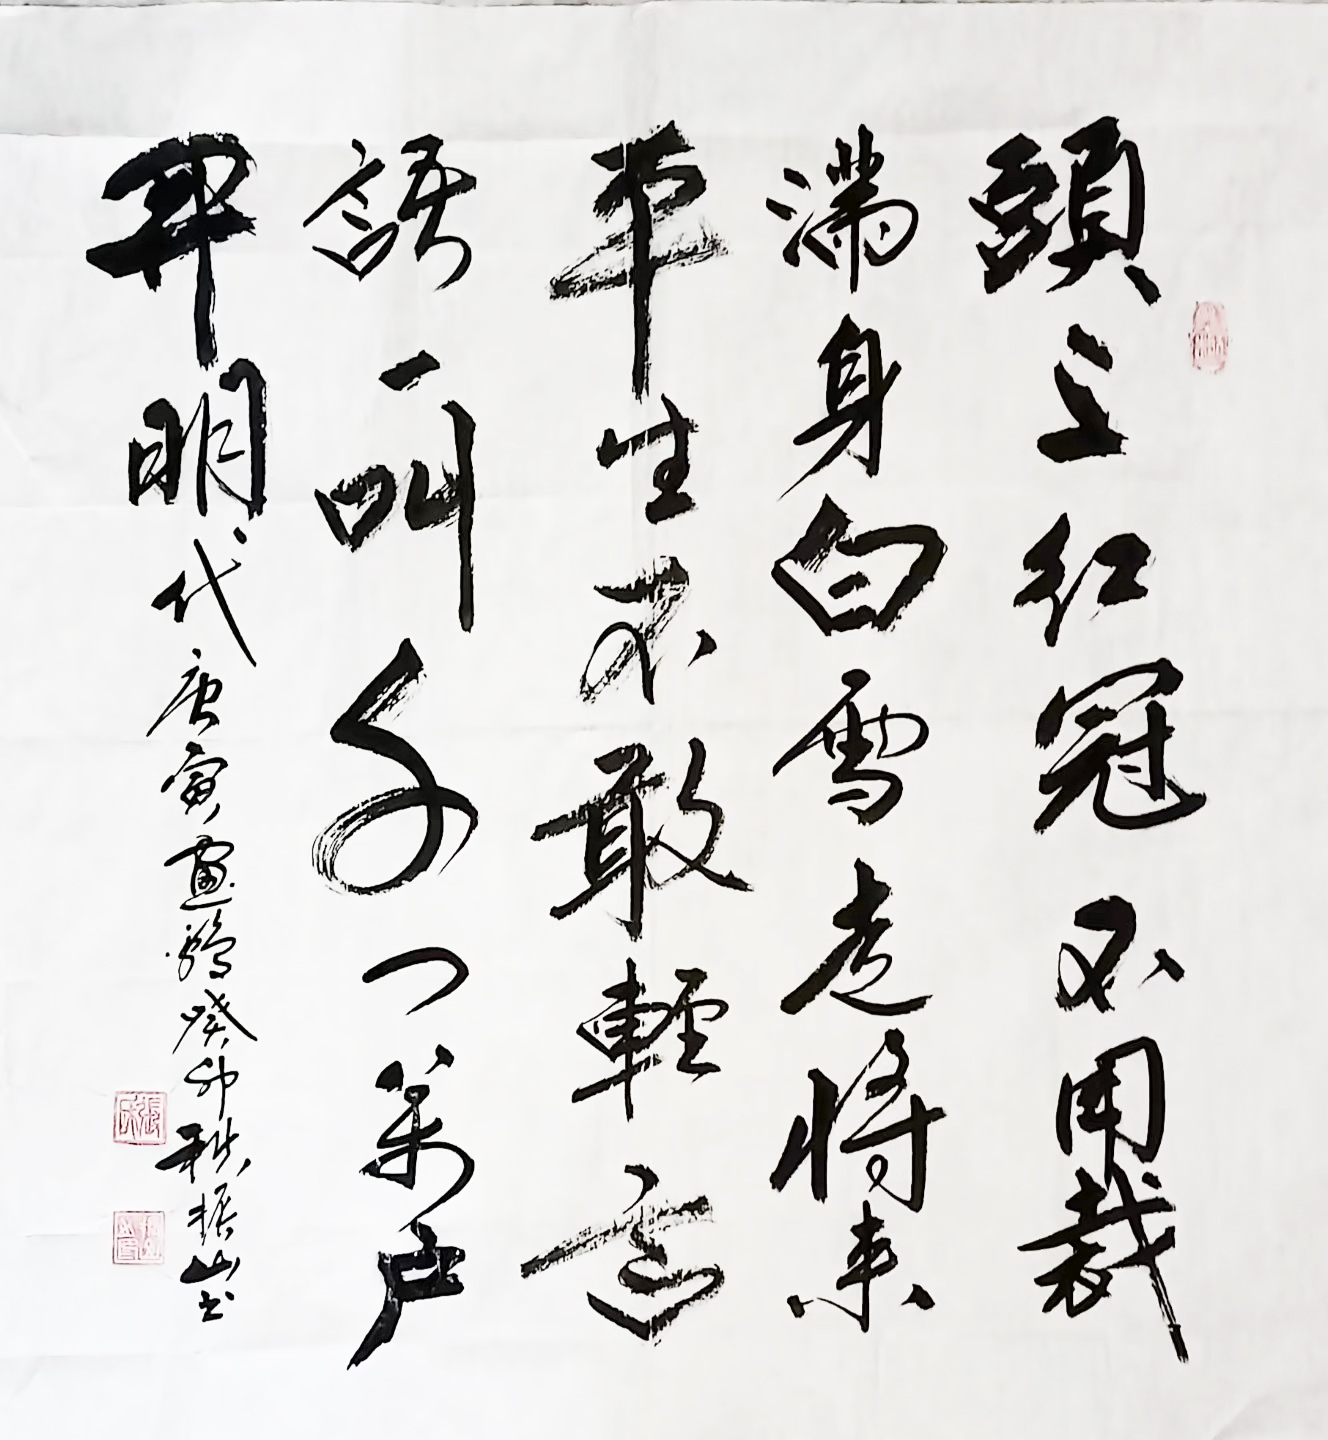 頭上红冠不用裁
滿身白雪走将来
平生不敢輕言
語一叫千门萬户
開明代唐寅畫鷄癸卯秋振山书